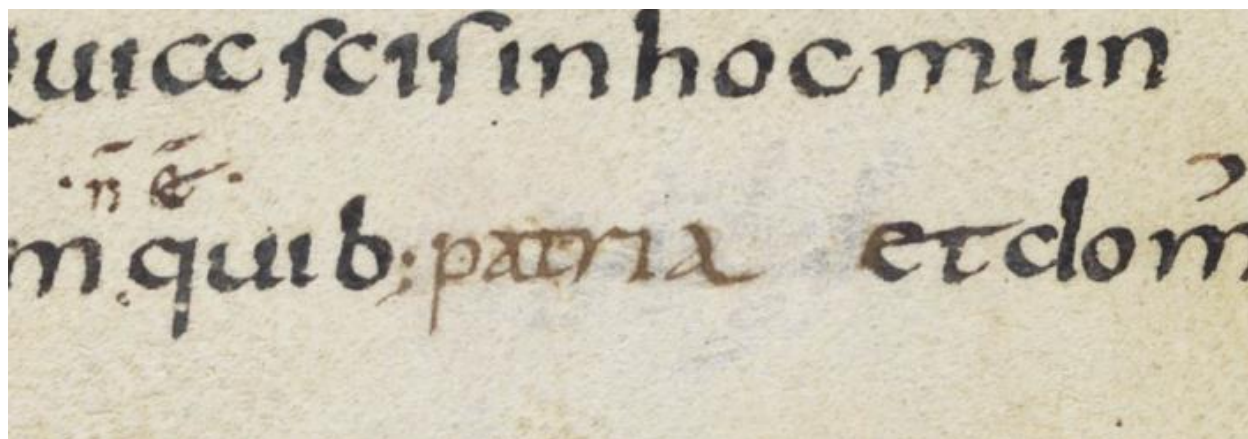 quiescis in hoc mun
·n̄ ē·
m quib; patria et dom̕